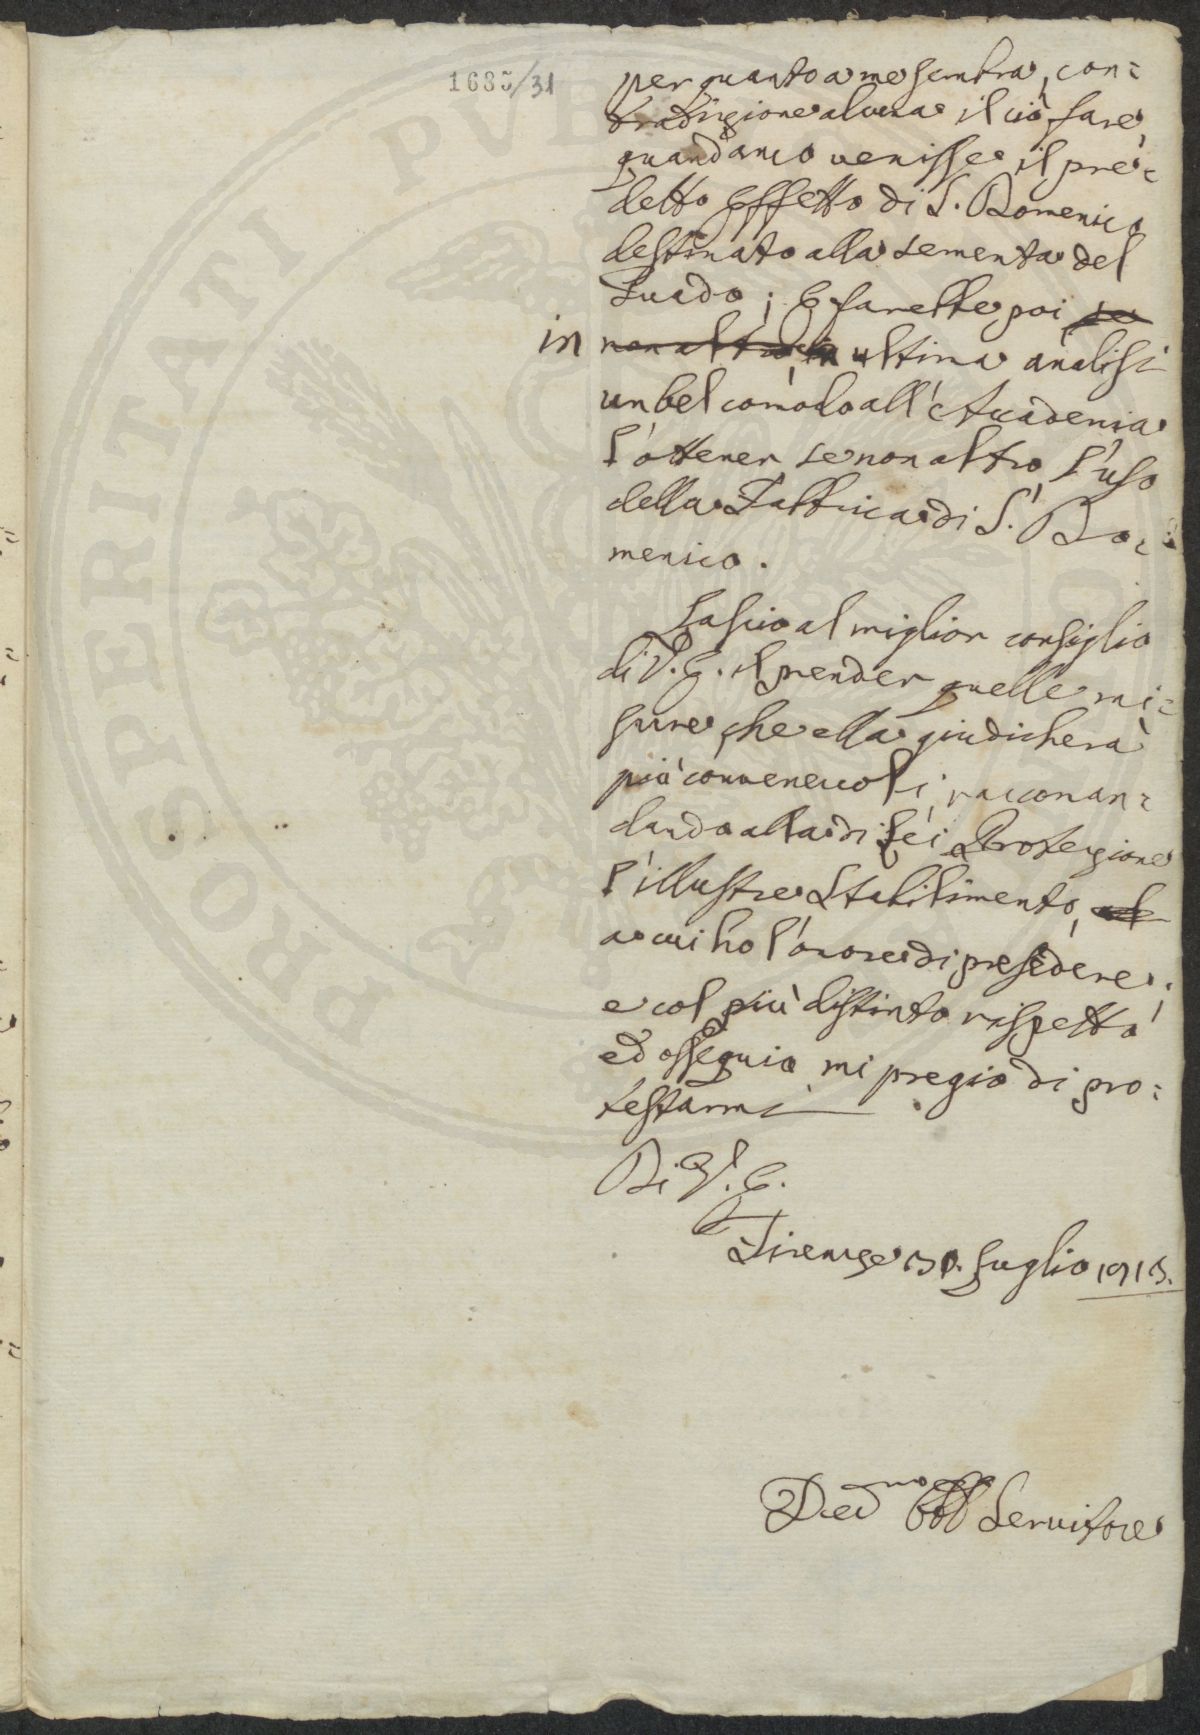 1685/31
per quanto a me sembra, con=
tradizione alcuna il ciò fare,
quand'anco venisse il pre=
detto Effetto di S. Domenico
destinato alla sementa del
Guado; E sarebbe poi se
in non altro, in ultima analisi
un bel comodo all'Accademia
l'ottener se non altro l'uso
della Fabbrica di S. Do=
menico.
Lascio al miglior consiglio
di V. E. il prender quelle mi=
sure, che ella giudicherà
più convenevoli, raccoman=
dando alla di Lei Protezione
l'illustre Stabilimento, al
a cui ho l'onore di presedere;
e col più distinto rispetto
ed ossequio mi pregio di pro=
testarmi
Di V. E.
Firenze 30. Luglio 1813.
Dev.mo Obb. Servitore
PROSPERITATI